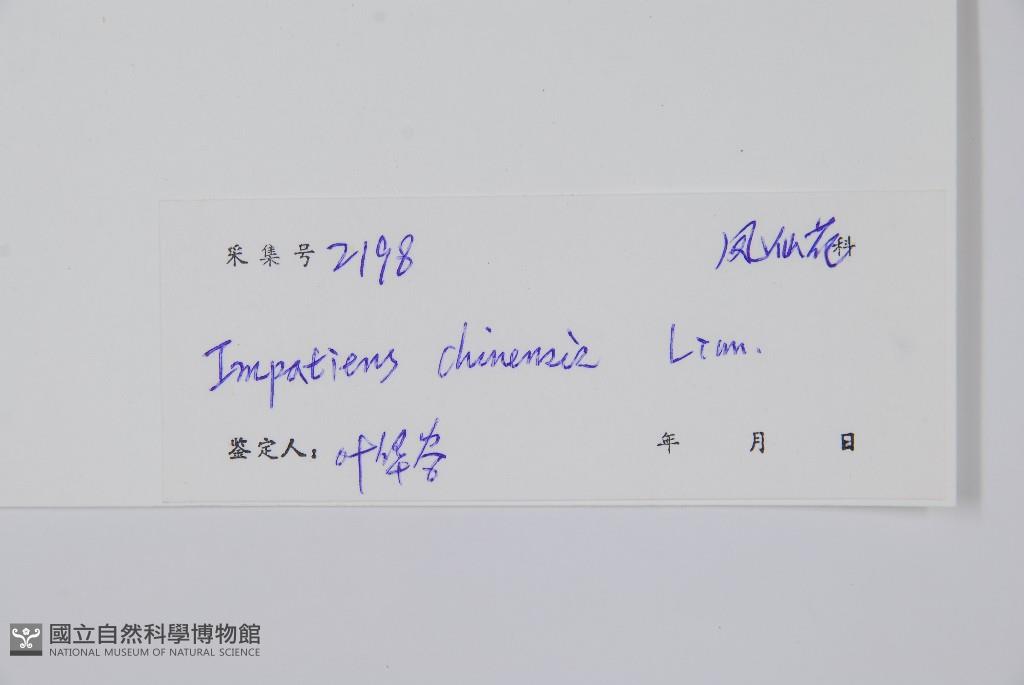 采集号 2198 凤仙花科
Impatiens chinensis Linn.
鉴定人: 叶华谷 年 月 日
國立自然科學博物館
NATIONAL MUSEUM OF NATURAL SCIENCE